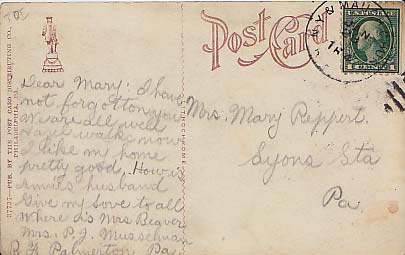 Post Card
37757-PUB. BY THE POST CARD DISTRIBUTING CO.,
PHILADELPHIA, PA.
Dear Mary: I have
not forgotton you
We are all well
Hazel walks now
I like my home
pretty good. How is
Annies husband
Give my love to all
Where is Mrs Beaver
Mrs. P. J. Musselman
Palmerton Pa.
Mrs. Mary Reppert.
Lyons Sta
Pa.
1 CENT 1